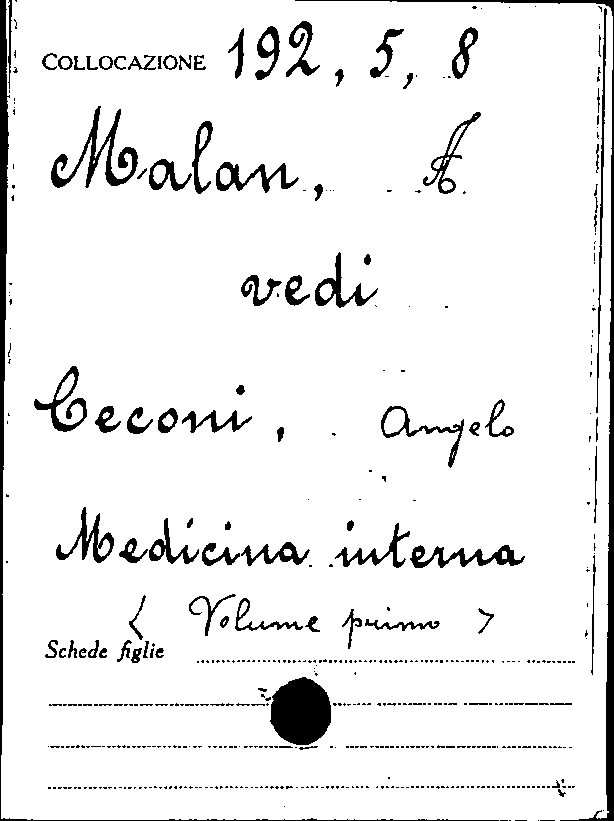 COLLOCAZIONE 192, 5, 8
Malan, A.
vedi
Ceconi, Angelo
Medicina interna
< Volume primo >
Schede figlie